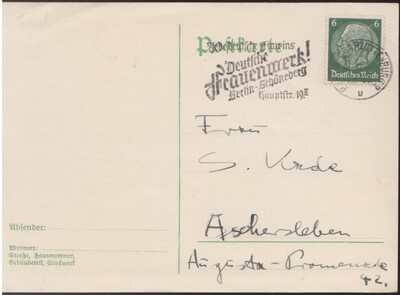 Postkarte
Jede deutsche Frau ins
Deutsche
Frauenwerk!
Berlin-Schöneberg
Hauptstr. 19
6 6
Deutsches Reich
Frau
S.
Aschersleben
Augusta-Promenade
42.
Absender:
Wohnort:
Straße, Hausnummer,
Gebäudeteil, Stockwerk